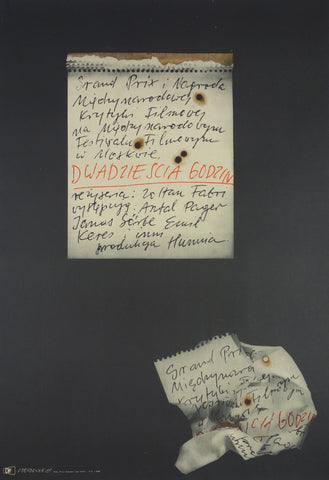 Grand Prix i Nagroda
Międzynarodowej
Krytyki Filmowej
na Międzynarodowym
Festiwalu Filmowym
w Moskwie,
DWADZIEŚCIA GODZIN
reżyseria: Zoltan Fabri
występują: Antal Pager
Janos Görbe Emil
Keres i inni
produkcja Hunnia.
Grand Prix
Międzynarod
Krytyki Filmowej